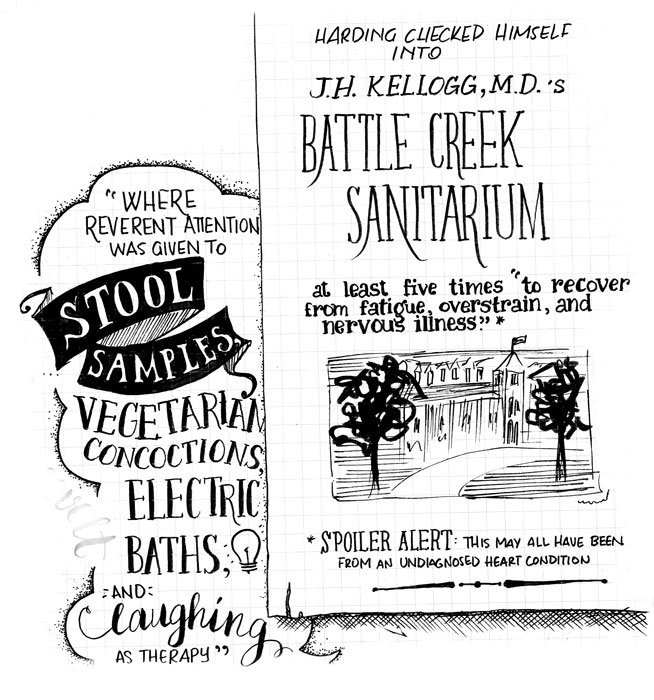 HARDING CHECKED HIMSELF
INTO
J.H. KELLOGG, M.D.'s
BATTLE CREEK
SANITARIUM
at least five times "to recover
from fatigue, overstrain, and
nervous illness" *
* SPOILER ALERT: THIS MAY ALL HAVE BEEN
FROM AN UNDIAGNOSED HEART CONDITION
"WHERE
REVERENT ATTENTION
WAS GIVEN TO
STOOL
SAMPLES,
VEGETARIAN
CONCOCTIONS,
ELECTRIC
BATHS,
AND
laughing
AS THERAPY"